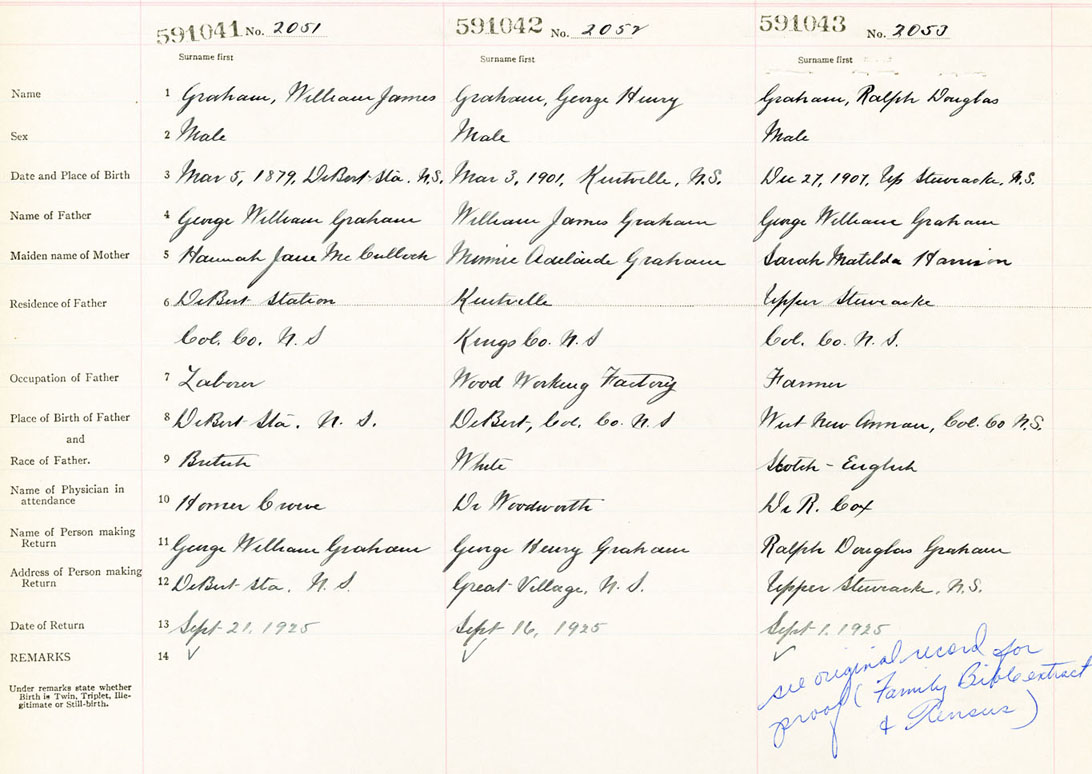 591041 No. 2051 591042 No. 2052 591043 No. 2053
Surname first Surname first Surname first
Name 1 Graham, William James Graham, George Henry Graham, Ralph Douglas
Sex 2 Male Male Male
Date and Place of Birth 3 Mar 5, 1879, DeBert Sta. N.S. Mar 3, 1901, Kentville, N.S. Dec 27, 1907, Up Stewiacke, N.S.
Name of Father 4 George William Graham William James Graham George William Graham
Maiden name of Mother 5 Hannah Jane McCulloch Minnie Adelaide Graham Sarah Matilda Harrison
Residence of Father 6 DeBert Station Kentville Upper Stewiacke
Col. Co. N. S Kings Co. N. S Col. Co. N. S.
Occupation of Father 7 Laborer Wood Working Factory Farmer
Place of Birth of Father 8 DeBert Sta. N. S. DeBert, Col. Co. N. S West New Annan, Col. Co N.S.
and
Race of Father. 9 British White Scotch - English
Name of Physician in
attendance 10 Homer Crowe Dr Woodworth Dr R. Cox
Name of Person making
Return 11 George William Graham George Henry Graham Ralph Douglas Graham
Address of Person making
Return 12 DeBert Sta. N. S. Great Village, N. S. Upper Stewiacke, N.S.
Date of Return 13 Sept 21, 1925 Sept 16, 1925 Sept 1. 1925
REMARKS 14 ✓ ✓ ✓
Under remarks state whether
Birth is Twin, Triplet, Ille-
gitimate or Still-birth.
see original record for
proof (Family Bible extract
& Census)